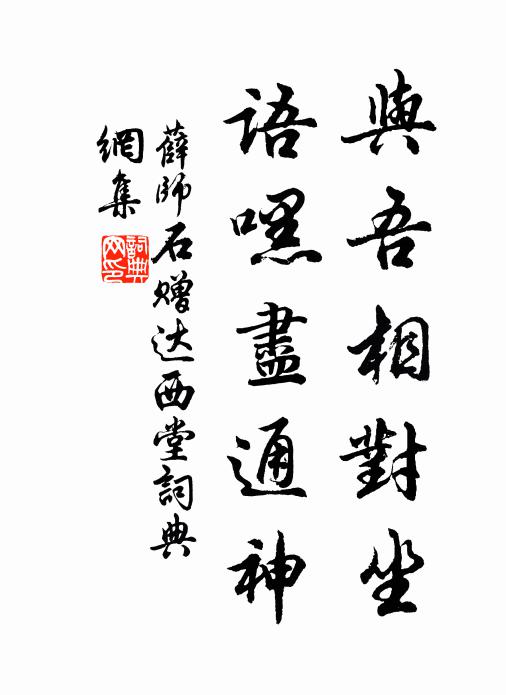 與吾相對坐
語嘿盡通神
薛師石赠达西堂詞典
網集
詞典網印